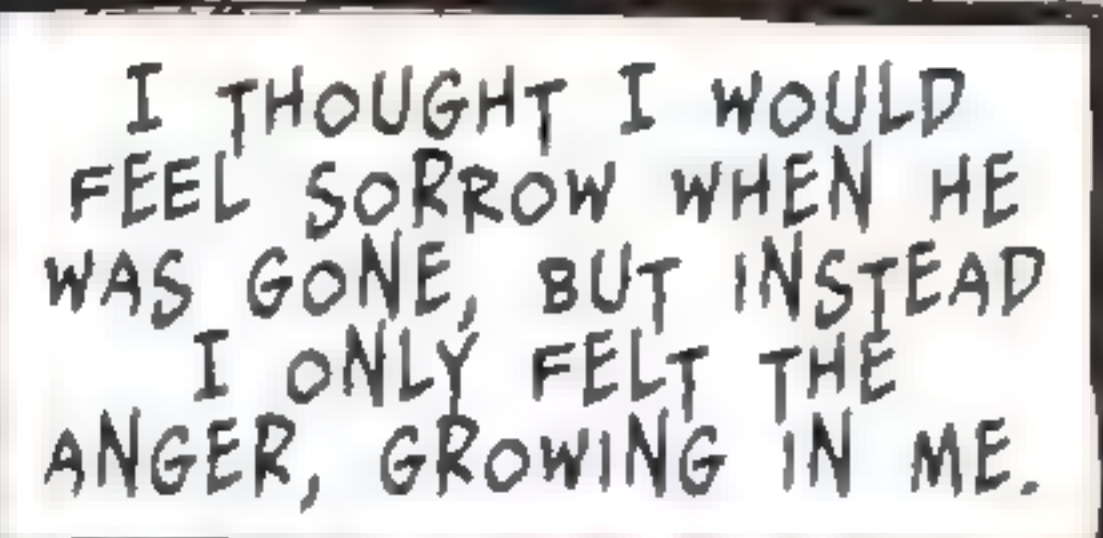 I THOUGHT I WOULD
FEEL SORROW WHEN HE
WAS GONE, BUT INSTEAD
I ONLY FELT THE
ANGER, GROWING IN ME.